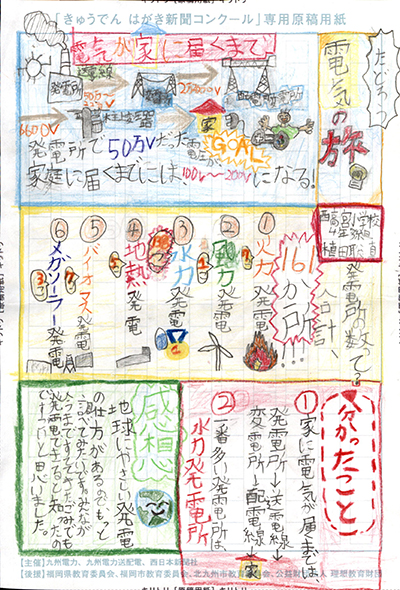 「きゅうでん はがき新聞コンクール」専用原稿用紙
電気が家に届くまで
たどろう
電気の旅
発電所
送電線
変電所
6600V
家
GOAL
発電所で50万Vだった電圧が
家庭に届くまでには100V〜200Vになる!
西高宮小学校
4年
発電所の数って?
合計、
161か所!!!
①火力発電
②風力発電
③水力発電
④地熱発電
⑤バイオマス発電
⑥メガソーラー発電
分かったこと
①家に電気が届くまでは
発電所→送電線→
変電所→配電線→家
②一番多い発電所は
水力発電所
感想
地球にやさしい発電
の仕方があるのでもっと
調べてみたい。みんなが
【主催】九州電力、九州電力送配電、西日本新聞社
【後援】福岡県教育委員会、福岡市教育委員会、北九州市教育委員会、公益財団法人 理想教育財団